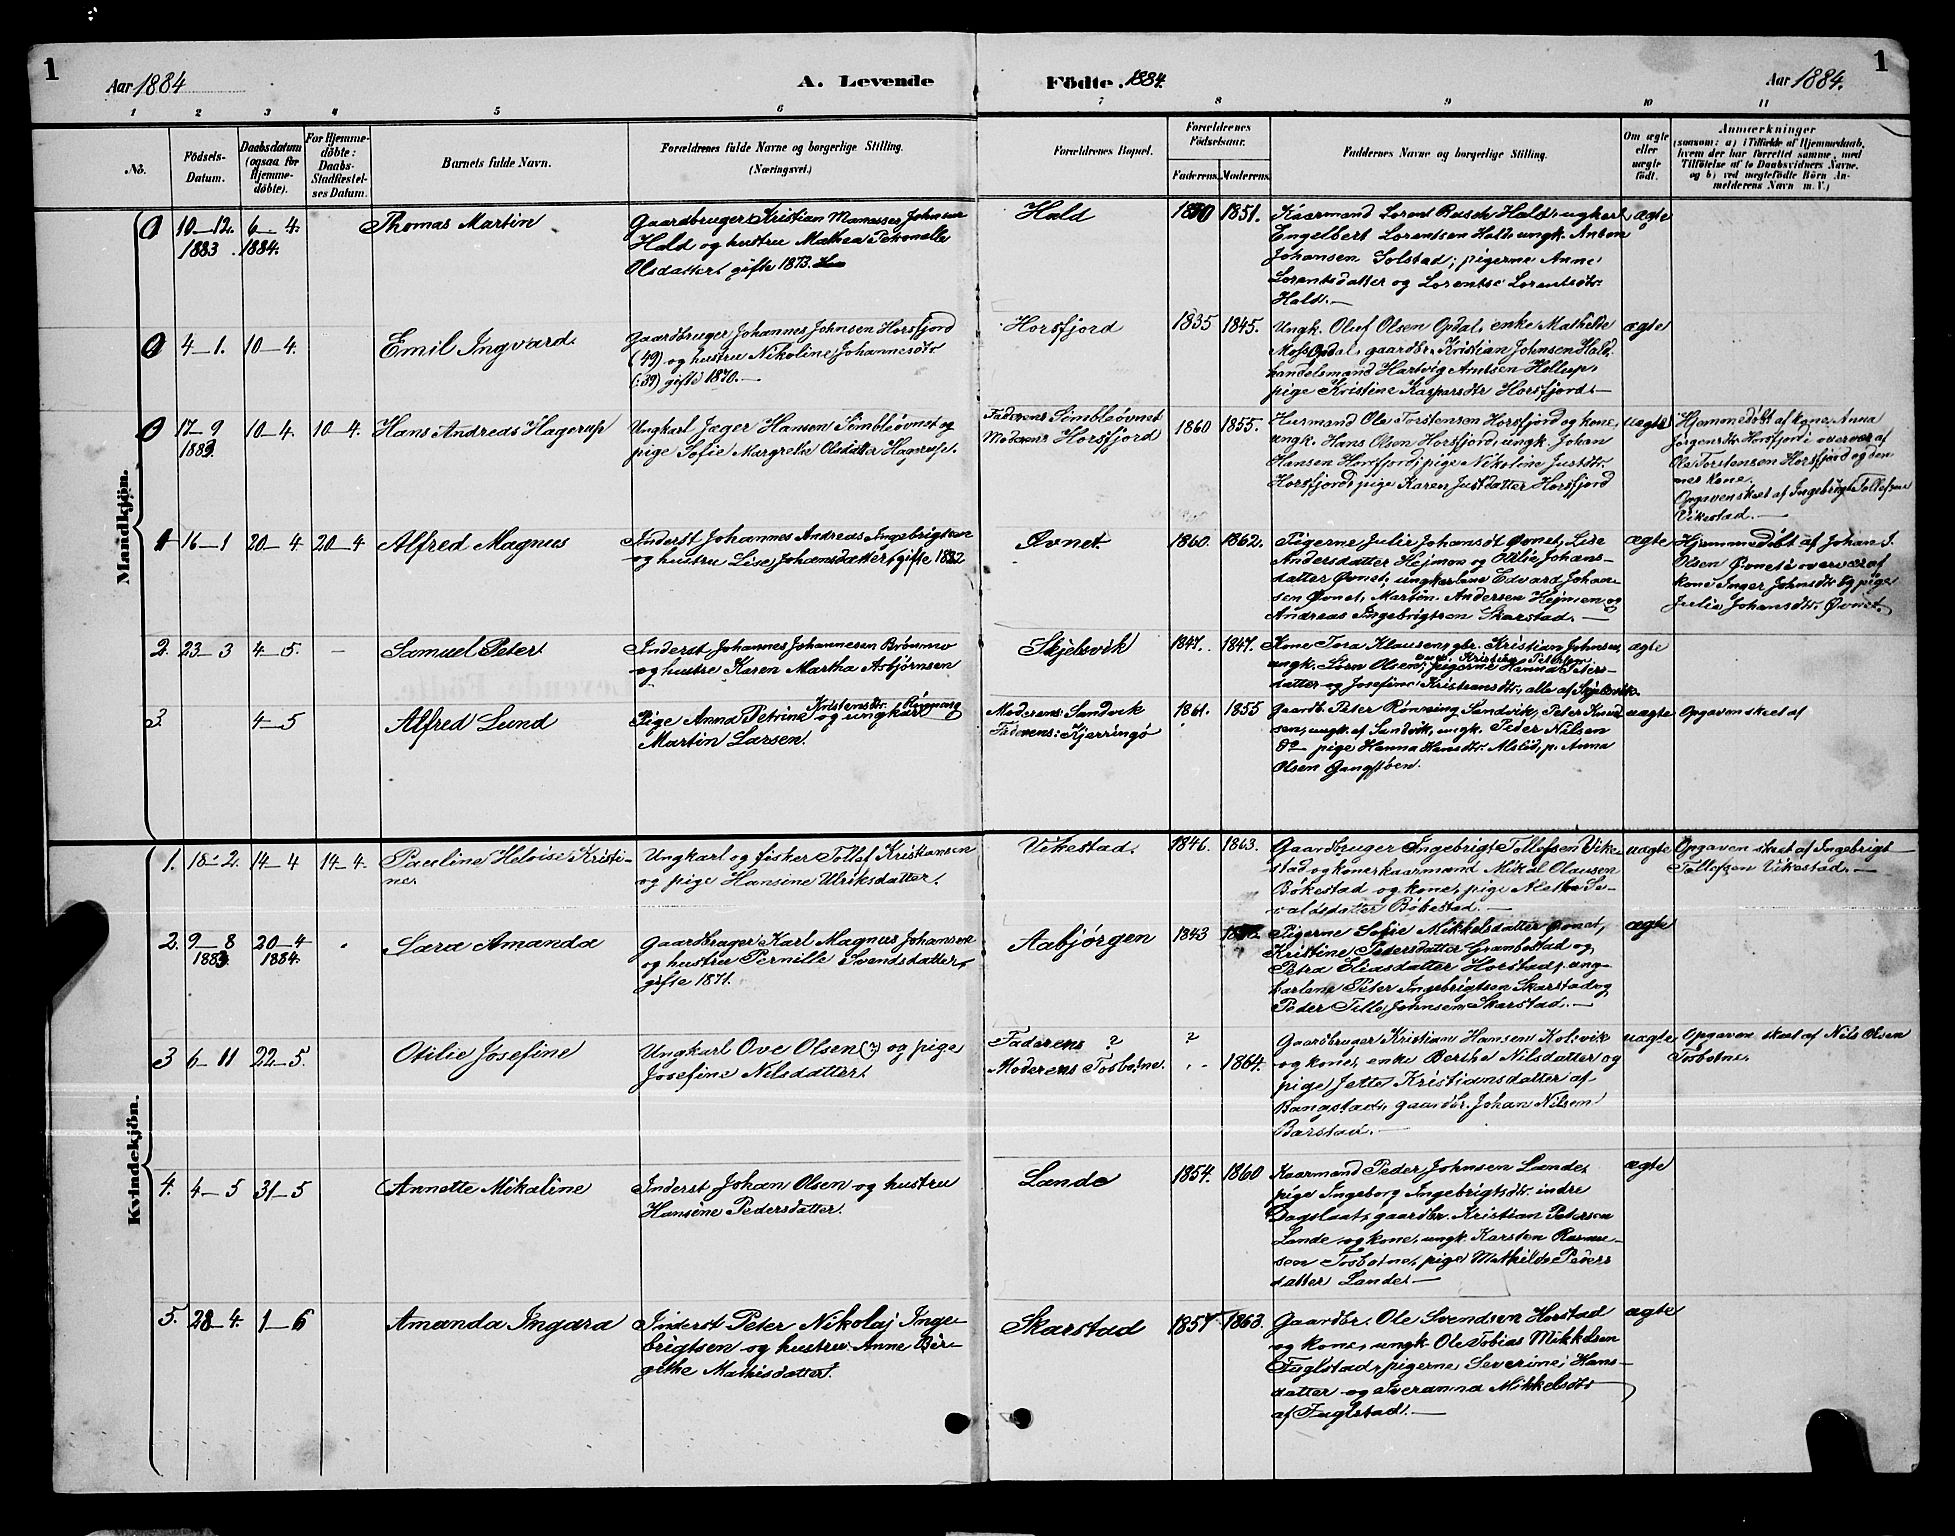 1
Aar 1884
A. Levende
Födte. 1884.
Aar 1884.
1
1 2 3 4 5 6 7 8 9 10 11
No.
Födsels-
Datum.
Daabsdatum
(ogsaa for
Hjemme-
døbte).
For Hjemme-
døbte:
Daabs-
Stadfæstel-
ses Datum.
Barnets fulde Navn.
Forældrenes fulde Navne og borgerlige Stilling.
(Næringsvei.)
Forældrenes Bopæl.
Forældrenes
Födselsaar.
Faderens. Moderens.
Faddernes Navne og borgerlige Stilling.
Om ægte
eller
uægte
født.
Anmærkninger
(saasom: a) i Tilfælde af Hjemmedaab,
hvem der har forrettet samme, med
Tilføielse af to Daabsvidners Navne.
og b) ved uegtefødte Börn An-
melderens Navn m. V.)
Mandkjön.
0 10-12. 1883 6-4. 1884. Thomas Martin
Gaardbruger Kristian Manasses Johnsen
Hald og hustru Mathea Petronelle
Olsdatter, gifte 1873.
Hald
1850 1851.
Kaarmand Lorent Busch Hald, ugkarl
Engelbert Lorentsen Hald, ungk. Anton
Johansen Solstad; pigerne Anne
Lorentsdatter og Lorentse Lorentsdtr.
Hald.—
ægte
0 4-1. 10-4. Emil Ingvard.
Gaardbruger Johannes Johnsen Horsfjord
(49) og hustru Nikoline Johannesdtr.
(:39) gifte 1870.—
Horsfjord
1835 1845.
Ungk. Oluf Olsen Opdal, enke Mathilde
Moss Opdal, gaardbr. Kristian Johnsen Hald,
handelsmand Hartvig Amtsen Hellup,
pige Kristine Kaspersdtr Horsfjord.—
ægte
0 17-9 1883 10-4. 10-4. Hans Andreas Hagerup
Ungkarl Jæger Hansen Sømbleøvnet og
pige Sofie Margrethe Olsdatter Hagerup.
Faderens Sømbleøvnet
Moderens Horsfjord
1860 1855.
Husmand Ole Torstensen Horsfjord og kone,
ungk. Hans Olsen Horsfjord, ungk. Johan
Hansen Horsfjord, pige Nikoline Justdtr.
Horsfjord, pige Karen Justdatter Horsfjord
uægte
Hjemmedøbt af kone Anna
Jørgensdtr. Horsfjord i overvær af
Ole Torstensen Horsfjord og den
nes kone.
Opgaven skeet af Ingebrigt Tollefsen
Vikestad.—
1 16-1 20-4 20-4 Alfred Magnus
Inderst Johannes Andreas Ingebrigtsen
og hustru Lise Johansdatter, gifte 1882
Øvnet.
1860. 1862.
Pigerne Julie Johansdt Øvnet, Lise
Andersdatter Hejmon og Otilie Johans-
datter Øvnet, ungkarlene Edvard Johan-
sen Øvnet, Martin Andersen Hejmen og
Andreas Ingebrigtsen Skarstad.—
ægte
Hjemmedøbt af Johan I.
Olsen Øvnet i overvær af
kone Inger Johnsdtr. og pige
Julie Johansdtr. Øvnet.
2. 23-3 4-5. - Samuel Peter.
Inderst Johannes Johannesen Brønmo
og hustru Karen Martha Asbjørnsen
Skjelsvik
1847. 1847.
Kone Tora Klausen, gbr. Kristian Johnsen,
ungk. Jörn Olsen, pigerne Hanna Peters-
datter og Josefine Kristiansdtr., alle af Skjelsvik.
ægte
3. 4-5 Alfred Lund
Pige Anna Petrine Kristensdtr. Rönning og ungkarl
Martin Larsen.
Moderens: Sandvik
Faderens: Kjerringö
1861. 1855
Gaardb. Peter Rönning Sandvik, Peter Knud
sen, ungk. af Sandvik, ungk. Peder Nilsen
do pige Hanna Hansdtr. Alstid, p. Anna
Olsen Gangstöen.
uægte
Opgaven skeet af
Kvindekjön.
1. 18-2. 14-4 14-4. Pauline Heloise Kristi-
ne.
Ungkarl og fisker Tollef Kristiansen
og pige Hansine Ulriksdatter.
Vikestad.
1846. 1863.
Gaardbruger Ingebrigt Tollefsen Vike-
stad og kone, kaarmand Mikal Olausen
Bökestad og kone, pige Alethe Se-
valdsdatter Bökestad.—
uægte
Opgaven skeet af Ingebrigt
Tollefsen Vikestad.—
2. 9-8 1883. 20-4 1884. Sara Amanda
Gaardbruger Karl Magnus Johansen
og hustru Pernille Svendsdatter,
gifte 1871.
Aabjørgen
1843
Pigerne Sofie Mikkelsdatter Øvnet,
Kristine Pedersdatter Grambostad og
Petra Eliasdatter Horstad, ung-
karlene Peter Ingebrigtsen Skarstad og
Peder Tille Johnsen Skarstad.—
ægte
3 6-11 22-5. Otilie Josefine
Ungkarl Ove Olsen (?) og pige
Josefine Nelsdatter.
Faderens ?
Moderens Tosbotne.
? 1864.
Gaardbruger Kristian Hansen Kolsvik
og kone, enke Berthe Nilsdatter og
pige Jette Kristiansdatter af
Bangstad, gaardbr. Johan Nilsen
Barstad.—
uægte
Opgaven skeet af Nils Olsen
Tosbotne.
4. 4-5 31-5 Annette Mikaline
Inderst Johan Olsen og hustru
Hansine Pedersdatter.
Lande
1854. 1860
Kaarmand Peder Johnsen Lande,
pige Ingeborg Ingebrigtsdtr. indre
Dagslaat, gaardbr. Kristian Petersen
Lande og kone, ungk. Karsten Rasmu-
sen Tosbotne, pige Mathilde Peders
datter Lande.—
ægte
5. 28-4. 1-6 Amanda Ingara
Inderst Peter Nikolaj Inge-
brigtsen og hustru Anne Ber-
githe Mathisdatter.
Skarstad
1857 1863.
Gaardbr. Ole Svendsen Horstad
og kone, ungk. Ole Tobias Mikkelsen
Fuglstad, pigerne Severine Hans-
datter og Iveranna Mikkelsdtr
af Fuglstad.—
ægte